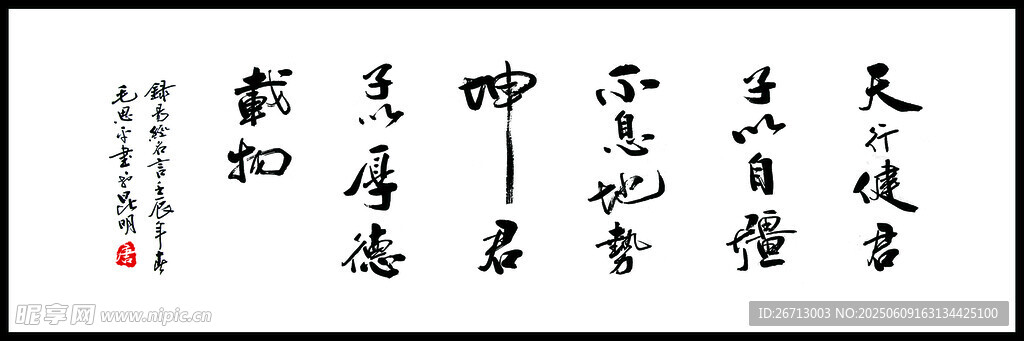 天行健君
子以自疆
不息地勢
坤君
子以厚德
載物
録易經名言壬辰年春
毛思平書於昆明
昵享网 www.nipic.cn
ID:26713003 NO:20250609163134425100